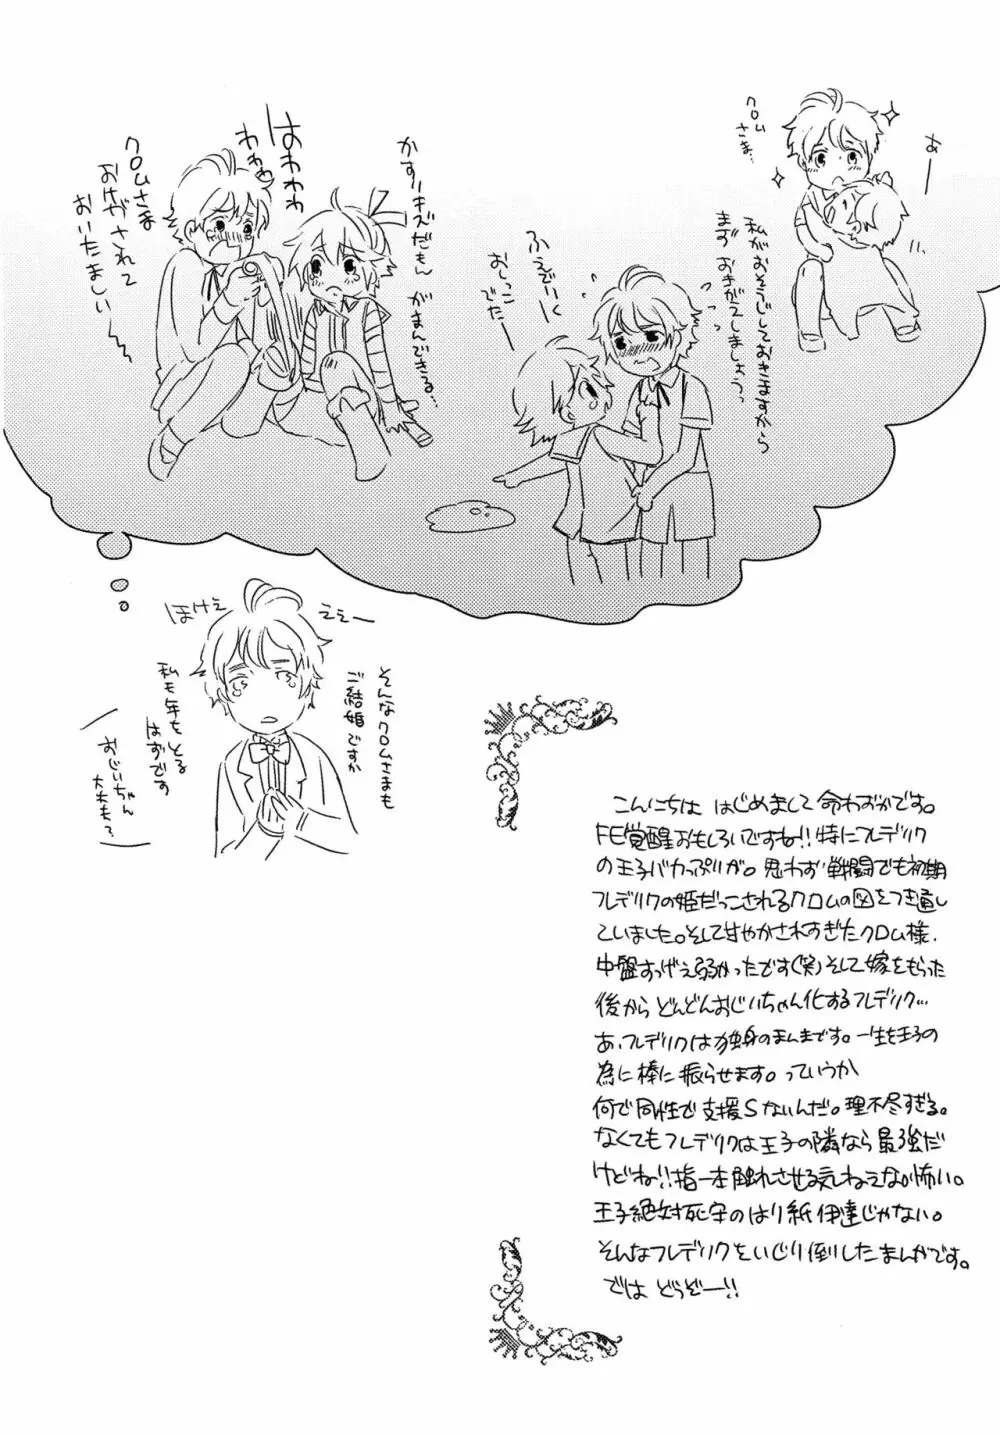 クロム
さま…
あー
私がおそうじしておきますから
まず おきがえしましょう?
ふえでいく
おしっこ
でたー
かすりキズだもん
がまんできる…
はわわわ
わわわ
クロムさま
おけがされて
おいたましい〜
ほけえ
ええー
そんなクロムさまも
ご結婚ですか
私も年をとる
はずです
おじいちゃん
大丈夫?
こんにちは はじめまして 命わずかです。
FE覚醒おもしろいですね!!特にフレデリク
の王子バカっぷりが。思わず戦闘でも初期
フレデリクの姫だっこされるクロムの図をつき通し
ていました。そして甘やかされすぎたクロム様、
中盤すっげえ弱かったです(笑)そして嫁をもらった
後から どんどんおじいちゃん化するフレデリク…
あ、フレデリクは独身のまんまです。一生を王子の
為に棒に振らせます。っていうか
何で同性で支援Sないんだ。理不尽すぎる。
なくてもフレデリクは王子の隣なら最強だ
けどね!!指一本触れさせる気ねえな怖い。
王子絶対死守のはり紙伊達じゃない。
そんなフレデリクをいじり倒したまんがです。
では どうぞー!!